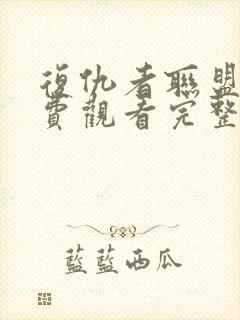 復仇者聯盟
費觀看完整
藍藍西瓜